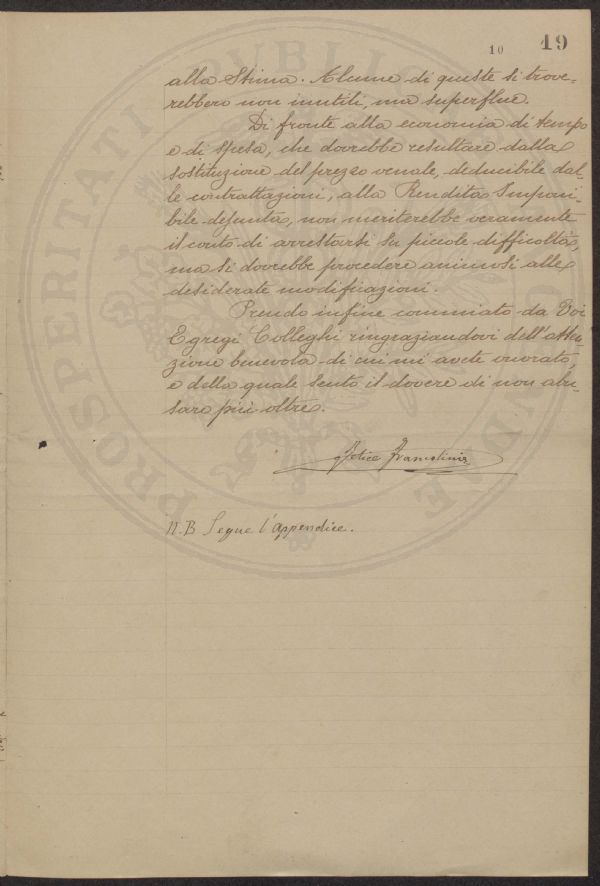 10 19
alla Stima. Alcune di queste si trove-
rebbero non inutili, ma superflue.
Di fronte alla economia di tempo
e di spesa, che dovrebbe resultare dalla
sostituzione del prezzo venale, deducibile dal-
le contrattazioni, alla Rendita Imponi-
bile defunta, non meriterebbe veramente
il conto di arrestarsi su piccole difficoltà,
ma si dovrebbe procedere animosi alle
desiderate modificazioni.
Prendo infine commiato da Voi
Egregi Colleghi ringraziandovi dell'atten-
zione benevola di cui mi avete onorato,
e della quale sento il dovere di non abu-
sare più oltre.
Felice Francolini
N.B Segue l'appendice.
PROSPERITATI PUBLIC